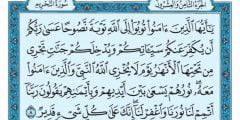 الجزء الثامن والعشرون سورة التحريم
يَا أَيُّهَا الَّذِينَ ءَامَنُوا تُوبُوا إِلَى اللَّهِ تَوْبَةً نَّصُوحًا عَسَىٰ رَبُّكُمْ
أَن يُكَفِّرَ عَنكُمْ سَيِّئَاتِكُمْ وَيُدْخِلَكُمْ جَنَّاتٍ تَجْرِي
مِن تَحْتِهَا الْأَنْهَارُ يَوْمَ لَا يُخْزِي اللَّهُ النَّبِيَّ وَالَّذِينَ ءَامَنُوا
مَعَهُ نُورُهُمْ يَسْعَىٰ بَيْنَ أَيْدِيهِمْ وَبِأَيْمَانِهِمْ يَقُولُونَ رَبَّنَا
أَتْمِمْ لَنَا نُورَنَا وَاغْفِرْ لَنَا إِنَّكَ عَلَىٰ كُلِّ شَيْءٍ قَدِيرٌ ٨